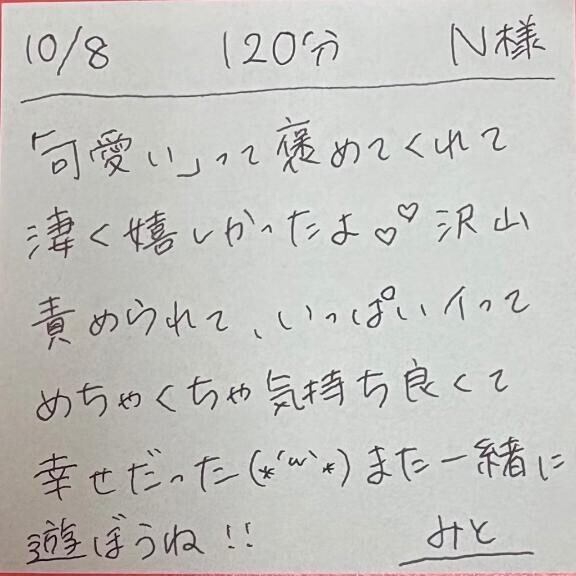 10/8 120分 N様
「可愛い」って褒めてくれて
凄く嬉しかったよ♡♡沢山
責められて、いっぱいイって
めちゃくちゃ気持ち良くて
幸せだった(*´ω`*)また一緒に
遊ぼうね!! みと